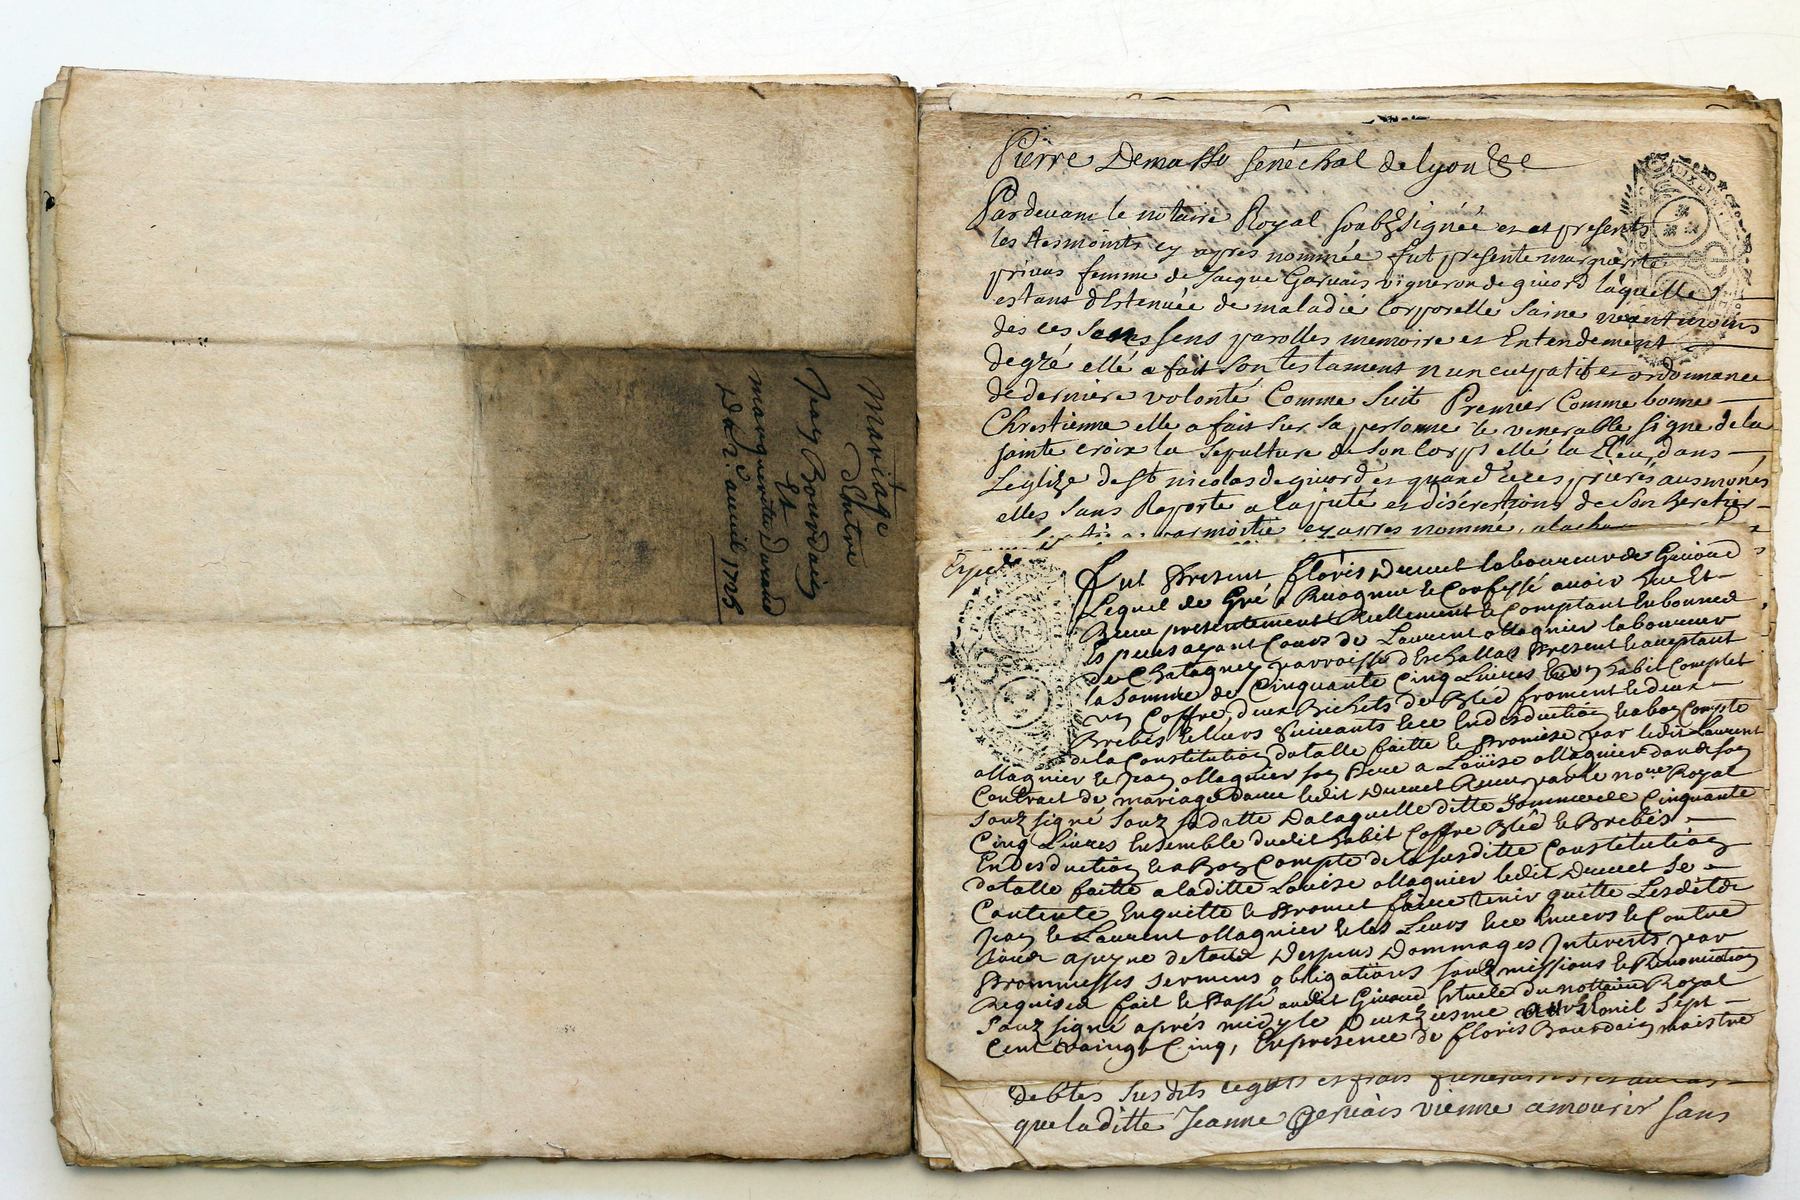 Mariage
d'Entre
Jean Bourdain
Et
marguerite Durand
Du 2e auril 1725
Pierre Demasso senéchal de lyon &c
Pardeuant le notaire Royal soubsignéé et et presents
les tesmoints cy apres nommée fut presente marguerite
priuas femme de Jacque Geruais vigneron de giuord laquelle
estant destenuée de maladié Corporelle saine neantmoins
des ces sens parolles memoire et Entendement
de gré ellé a fait son testament nuncupatif et ordonnance
de derniere volonté Comme suit Premier Comme bonne
Chrestienne elle a fait sur sa personne le venerable signe de la
sainte croix la sepulture de son Corps ellé la Eleu dans
Leglize de st nicolas de giuord et quand a ces prierés ausmonés
elles sans Raporte a la piuté et discresttion de son heretier
par moitié cy apres nommé,
Expedié
Fut Present, floris Ducuet laboureur de Giuord
Lequel de Gré a Recognu et Confessé auoir Eue Et
Receu presentement Reellement et Comptant En bonnes
Espeues ayant Cours de Laurent Magnier laboureur
de Chatagney parroisse d'Eschallas Present et acceptant
la somme de Cinquante Cinq Liures Un habit Complet
un Coffre, deux Bichets de Bléd froment et deux
Brebis et leurs suiuants Et ce En desduction et a bon Compte
de la Constitution dotalle faitte et Promise par ledit Laurent
Magnier et Jean Magnier son Pere a Loüise Magnier dans son
Contract de mariage auec ledit Ducuet Receu par le nore Royal
souz signé souz sa datte De laquelle ditte somme de Cinquante
Cinq Liures Ensemble dudit habit Coffre Bléd et Brebis
En desduction et a Bon Compte de la susditte Constitution
dotalle faitte a laditte Louise Magnier ledit Ducuet se
Contente En quitte et Promet faire tenir quitte Lesdits
Jean et Laurent Magnier et les Leurs Et ce Enuers et Contre
tous a peyne de tous Despens Dommages Interests, par
Prommesses sermens obligations soubmissions et Renonciation
Requises fait et Passé audit Giuord Estude du nottaire Royal
souz signé aprés midy le Deuxziesme auril mil sept
Cent Vaingt Cinq, En presence de floris Bourdain maistre
debtes susdits legats et frais funeraires,
que laditte Jeanne geruais vienne a mourir sans